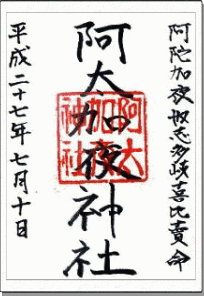 阿陀加夜奴志多岐喜比賣命
阿太加夜神社
阿太加夜神社
平成二十七年七月十日